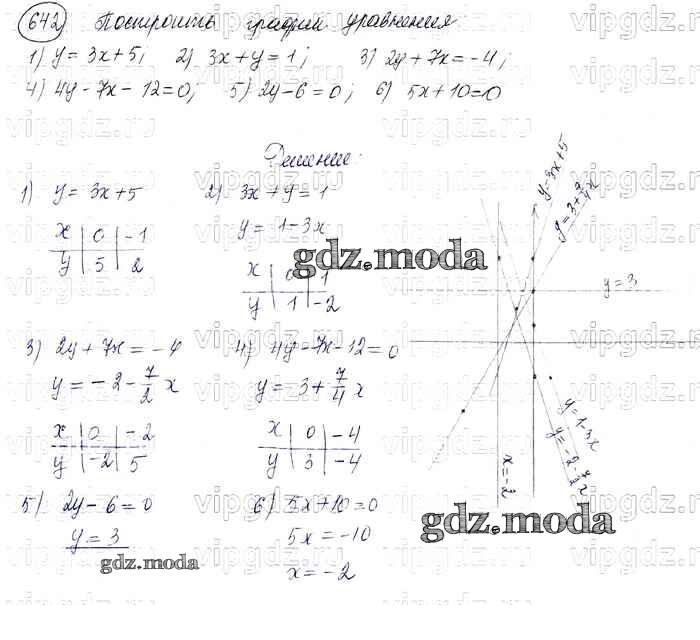 642) Построить график уравнения
1) y = 3x+5; 2) 3x+y=1; 3) 2y+7x=-4;
4) 4y-7x-12=0; 5) 2y-6=0; 6) 5x+10=0
Решение:
1) y = 3x+5
x | 0 | -1
y | 5 | 2
2) 3x+y=1
y=1-3x
x | 0 | 1
y | 1 | -2
3) 2y+7x=-4
y=-2-7/2 x
x | 0 | -2
y | -2 | 5
4) 4y-7x-12=0
y=3+7/4 x
x | 0 | -4
y | 3 | -4
5) 2y-6=0
y=3
6) 5x+10=0
5x=-10
x=-2
y=3x+5
y=3+7/4 x
y=3
y=1-3x
y=-2-7/2 x
x=-2
gdz.moda
gdz.moda
gdz.moda
vipgdz.ru